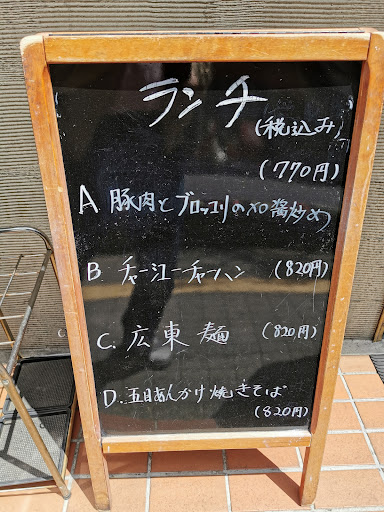 ランチ
(税込み)
(770円)
A 豚肉とブロッコリのXO醤炒め
B. チャーシューチャーハン (820円)
C. 広東麺 (820円)
D. 五目あんかけ焼きそば
(820円)